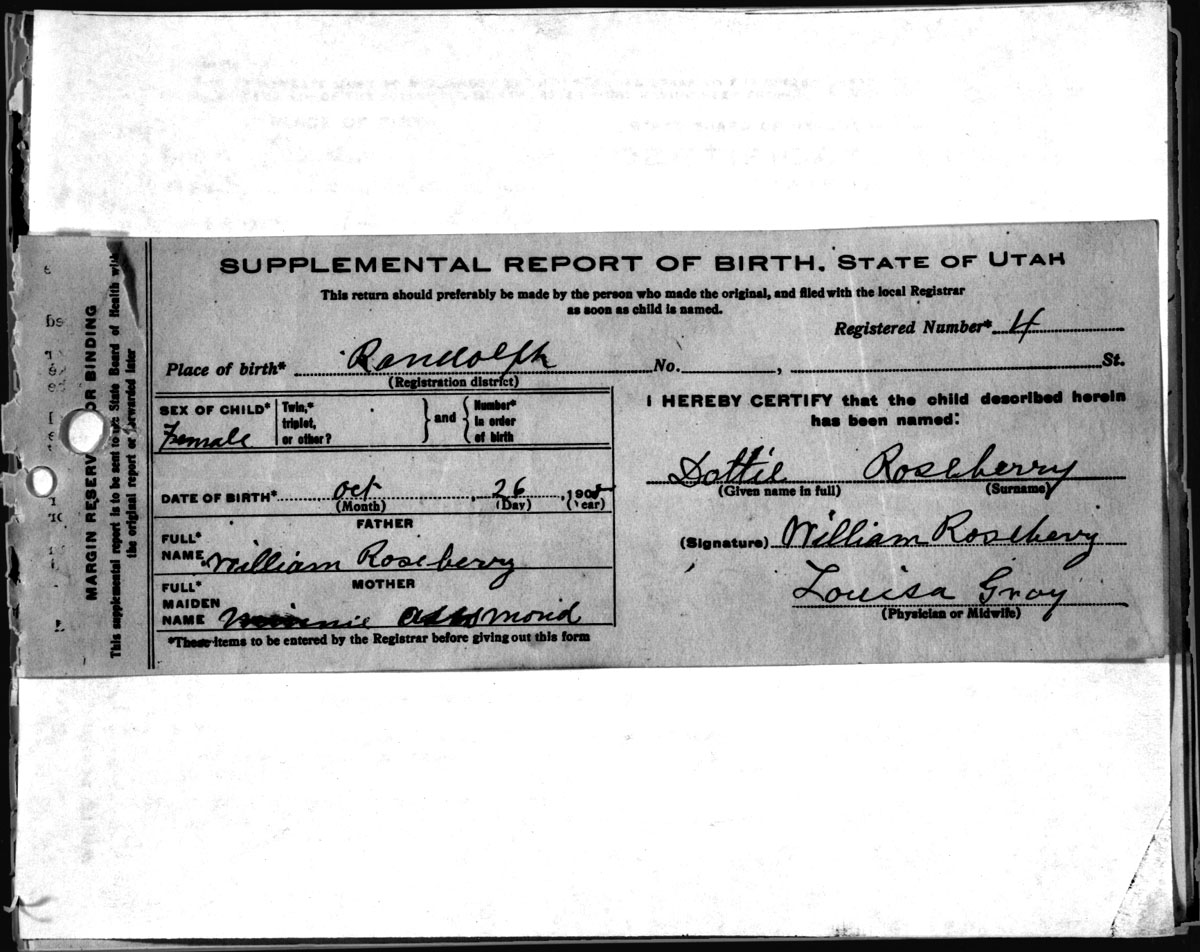 SUPPLEMENTAL REPORT OF BIRTH. STATE OF UTAH
This return should preferably be made by the person who made the original, and filed with the local Registrar
as soon as child is named.
Registered Number* 4
Place of birth* Randolph No. , St.
(Registration district)
SEX OF CHILD* Female
Twin,*
triplet,
or other?
and
Number*
in order
of birth
DATE OF BIRTH* Oct 26, 190
(Month) (Day) (Year)
FATHER
FULL*
NAME William Roseberry
MOTHER
FULL*
MAIDEN
NAME Minnie
*These items to be entered by the Registrar before giving out this form
I HEREBY CERTIFY that the child described herein
has been named:
Dottie Roseberry
(Given name in full) (Surname)
(Signature) William Roseberry
Louisa Gray
(Physician or Midwife)
MARGIN RESERV OR BINDING
This supplemental report is to be sent to the State Board of Health with
the original report or forwarded later